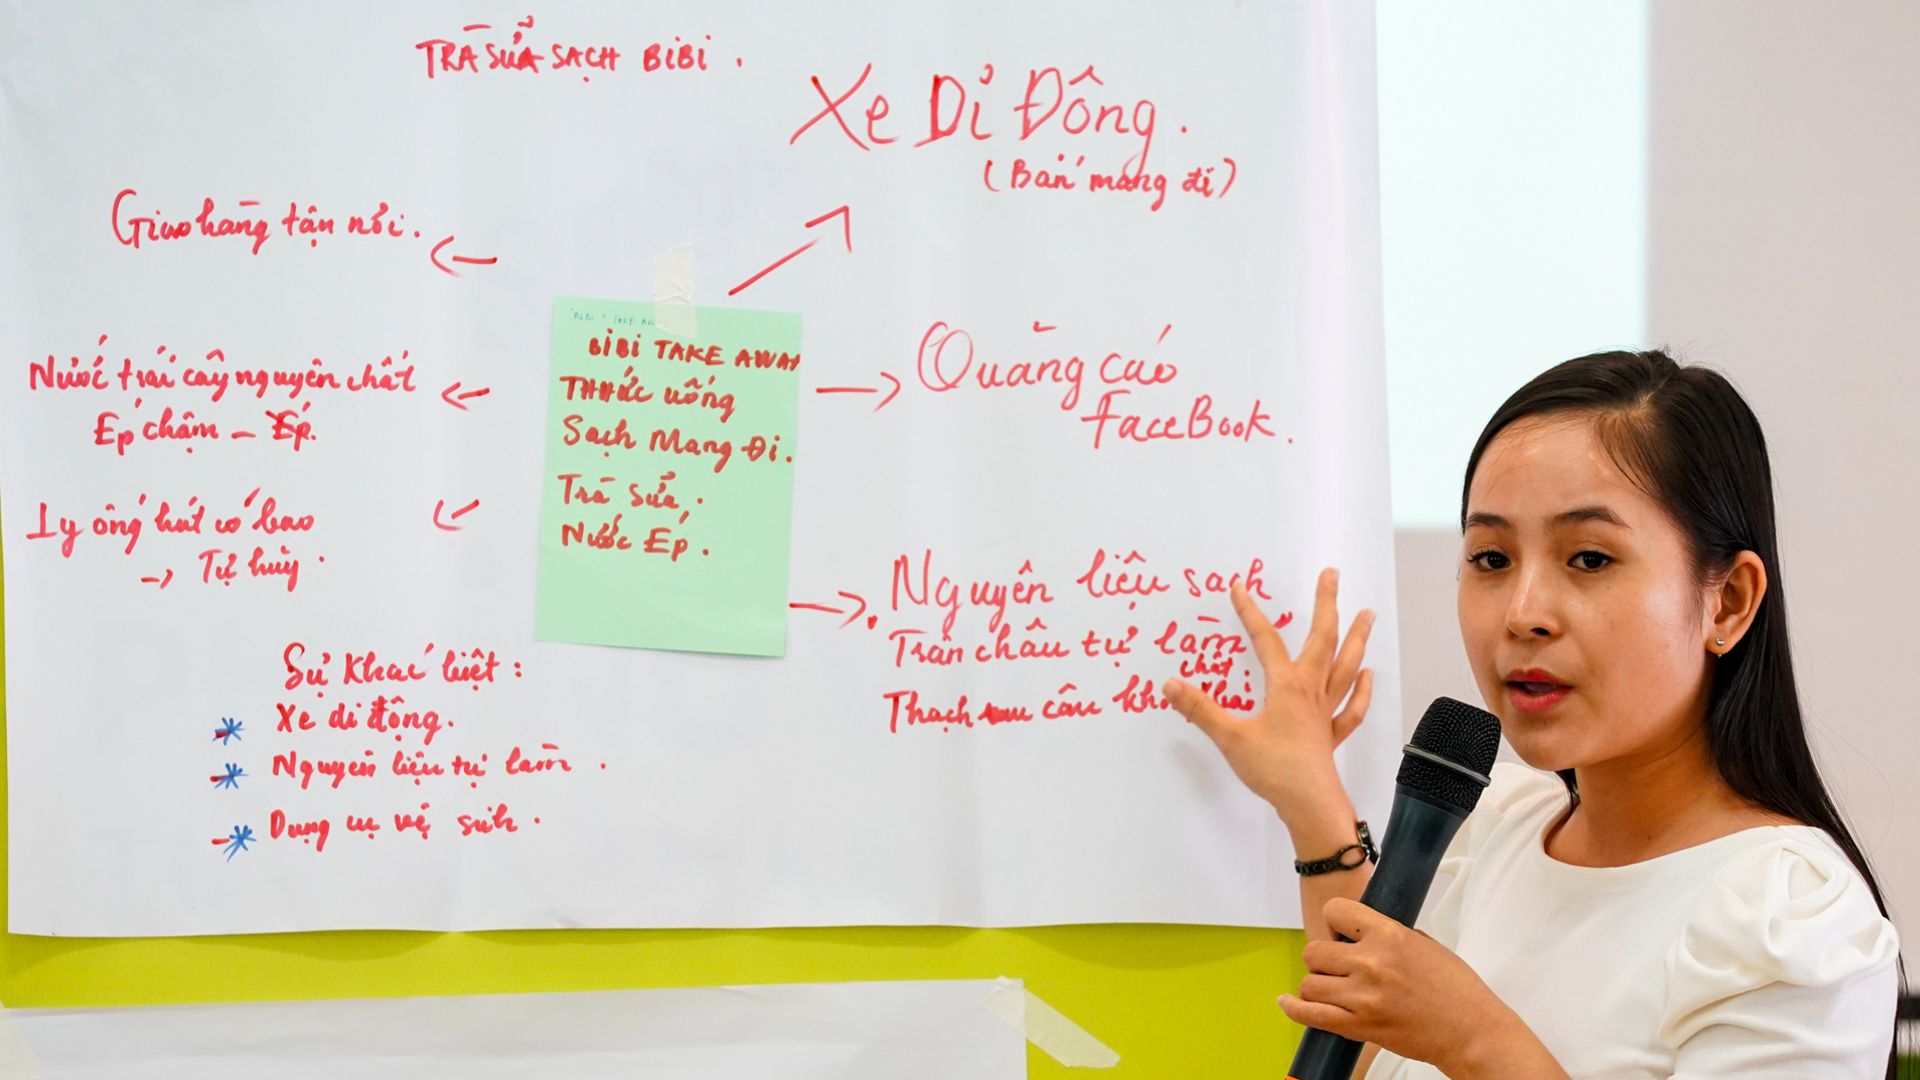 TRÀ SỬA SẠCH BiBi.
Xe Di Động.
(Bán mang đi)
Giao hàng tận nơi.
Nước trái cây nguyên chất
Ép chậm - Ép.
Ly ống hút có bao
→ Tự hủy.
"BiBi" TAKE
BiBi TAKE AWAY
THỨC uống
Sạch Mang Đi.
Trà sữa.
Nước Ép.
Quảng cáo
FaceBook.
Nguyên liệu sạch
Trân châu tự làm
chất.
Thạch rau câu
Sự khác biệt:
* Xe di động.
* Nguyên liệu tự làm.
* Dụng cụ vệ sinh.